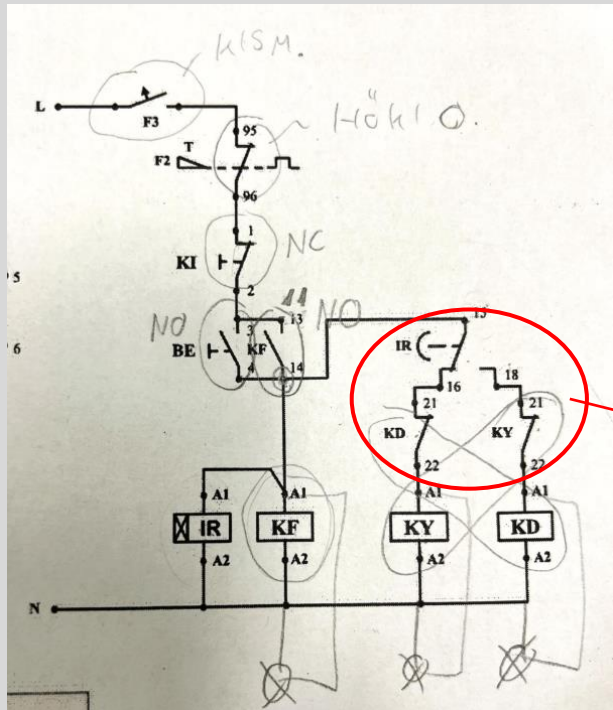 KISM.
L
F3
95
HŐKIO.
T
F2
96
1
KI
NC
2
5
NO
3
13
NO
15
6
BE
KF
IR
4
14
16
18
21
21
KD
KY
22
22
A1
A1
A1
A1
IR
KF
KY
KD
A2
A2
A2
A2
N